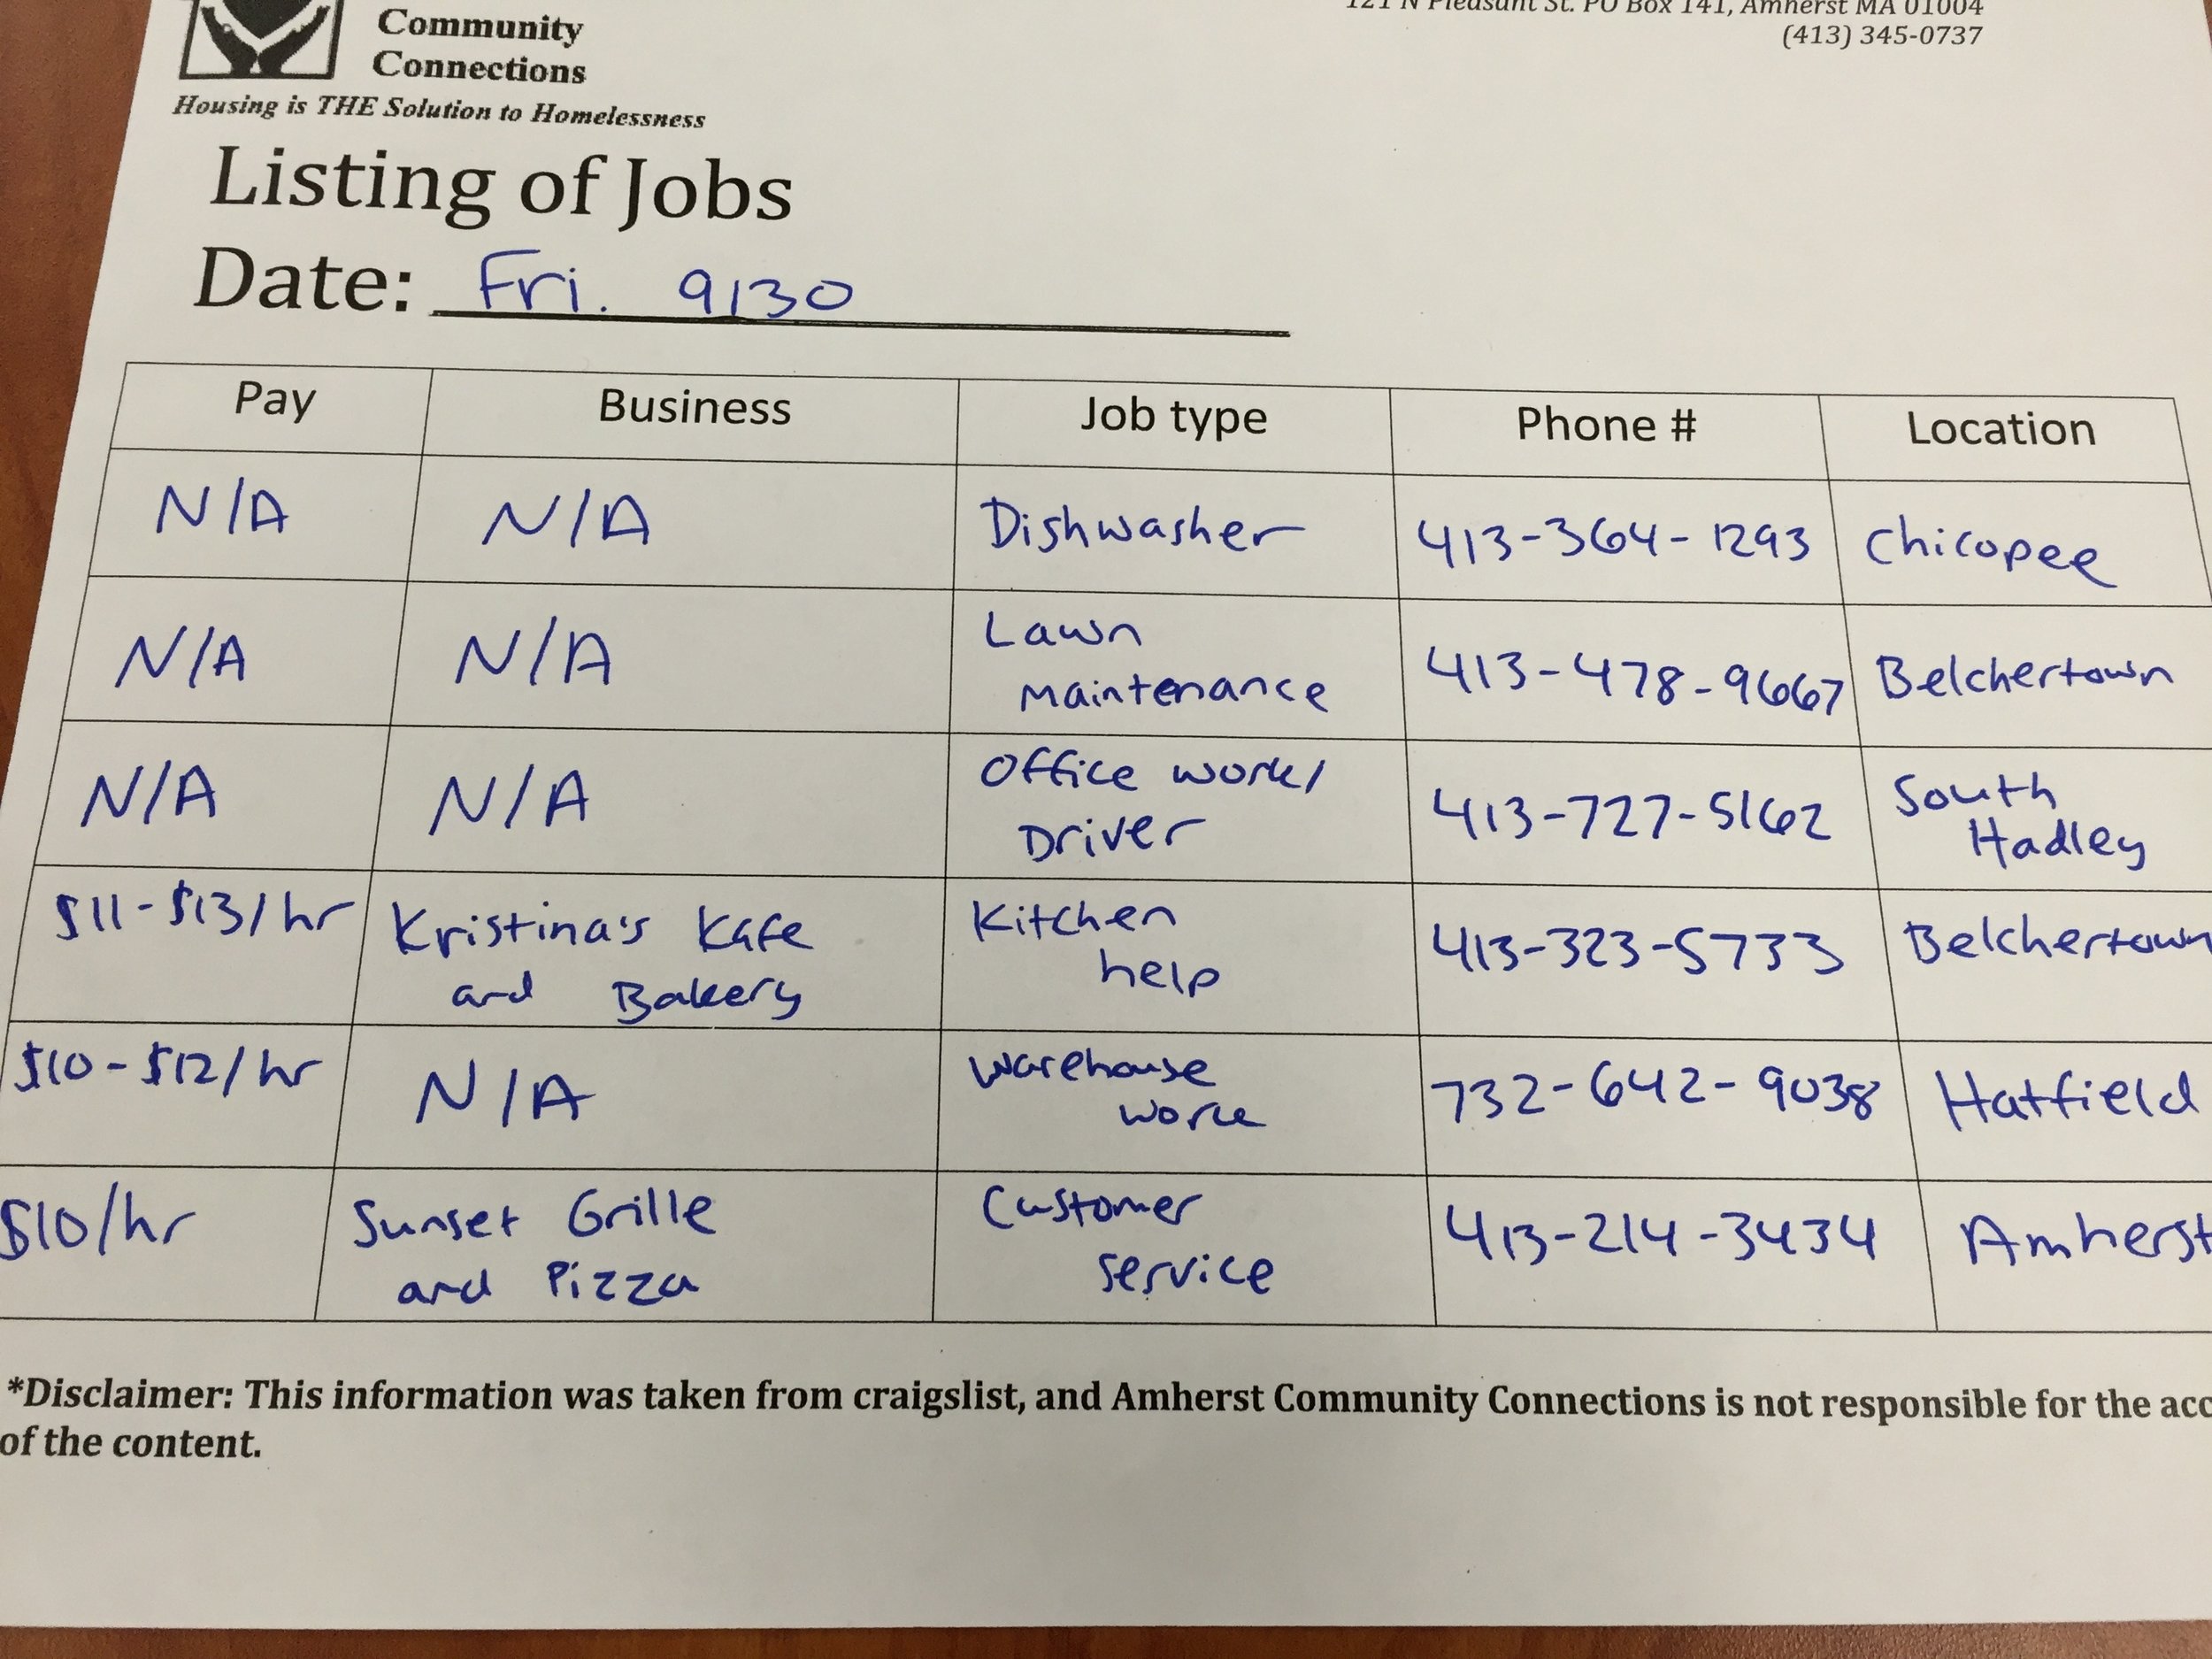 Community
Connections
Housing is THE Solution to Homelessness
121 N Pleasant St. PO Box 141, Amherst MA 01004
(413) 345-0737
Listing of Jobs
Date: Fri. 9/30
Pay Business Job type Phone # Location
N/A N/A Dishwasher 413-364-1293 Chicopee
N/A N/A Lawn
Maintenance 413-478-9667 Belchertown
N/A N/A Office work/
Driver 413-727-5162 South
Hadley
$11-$13/hr Kristina's Kafe
and Bakery Kitchen
help 413-323-5733 Belchertown
$10-$12/hr N/A Warehouse
work 732-642-9038 Hatfield
$10/hr Sunset Grille
and Pizza Customer
service 413-214-3434 Amherst
*Disclaimer: This information was taken from craigslist, and Amherst Community Connections is not responsible for the acc
of the content.